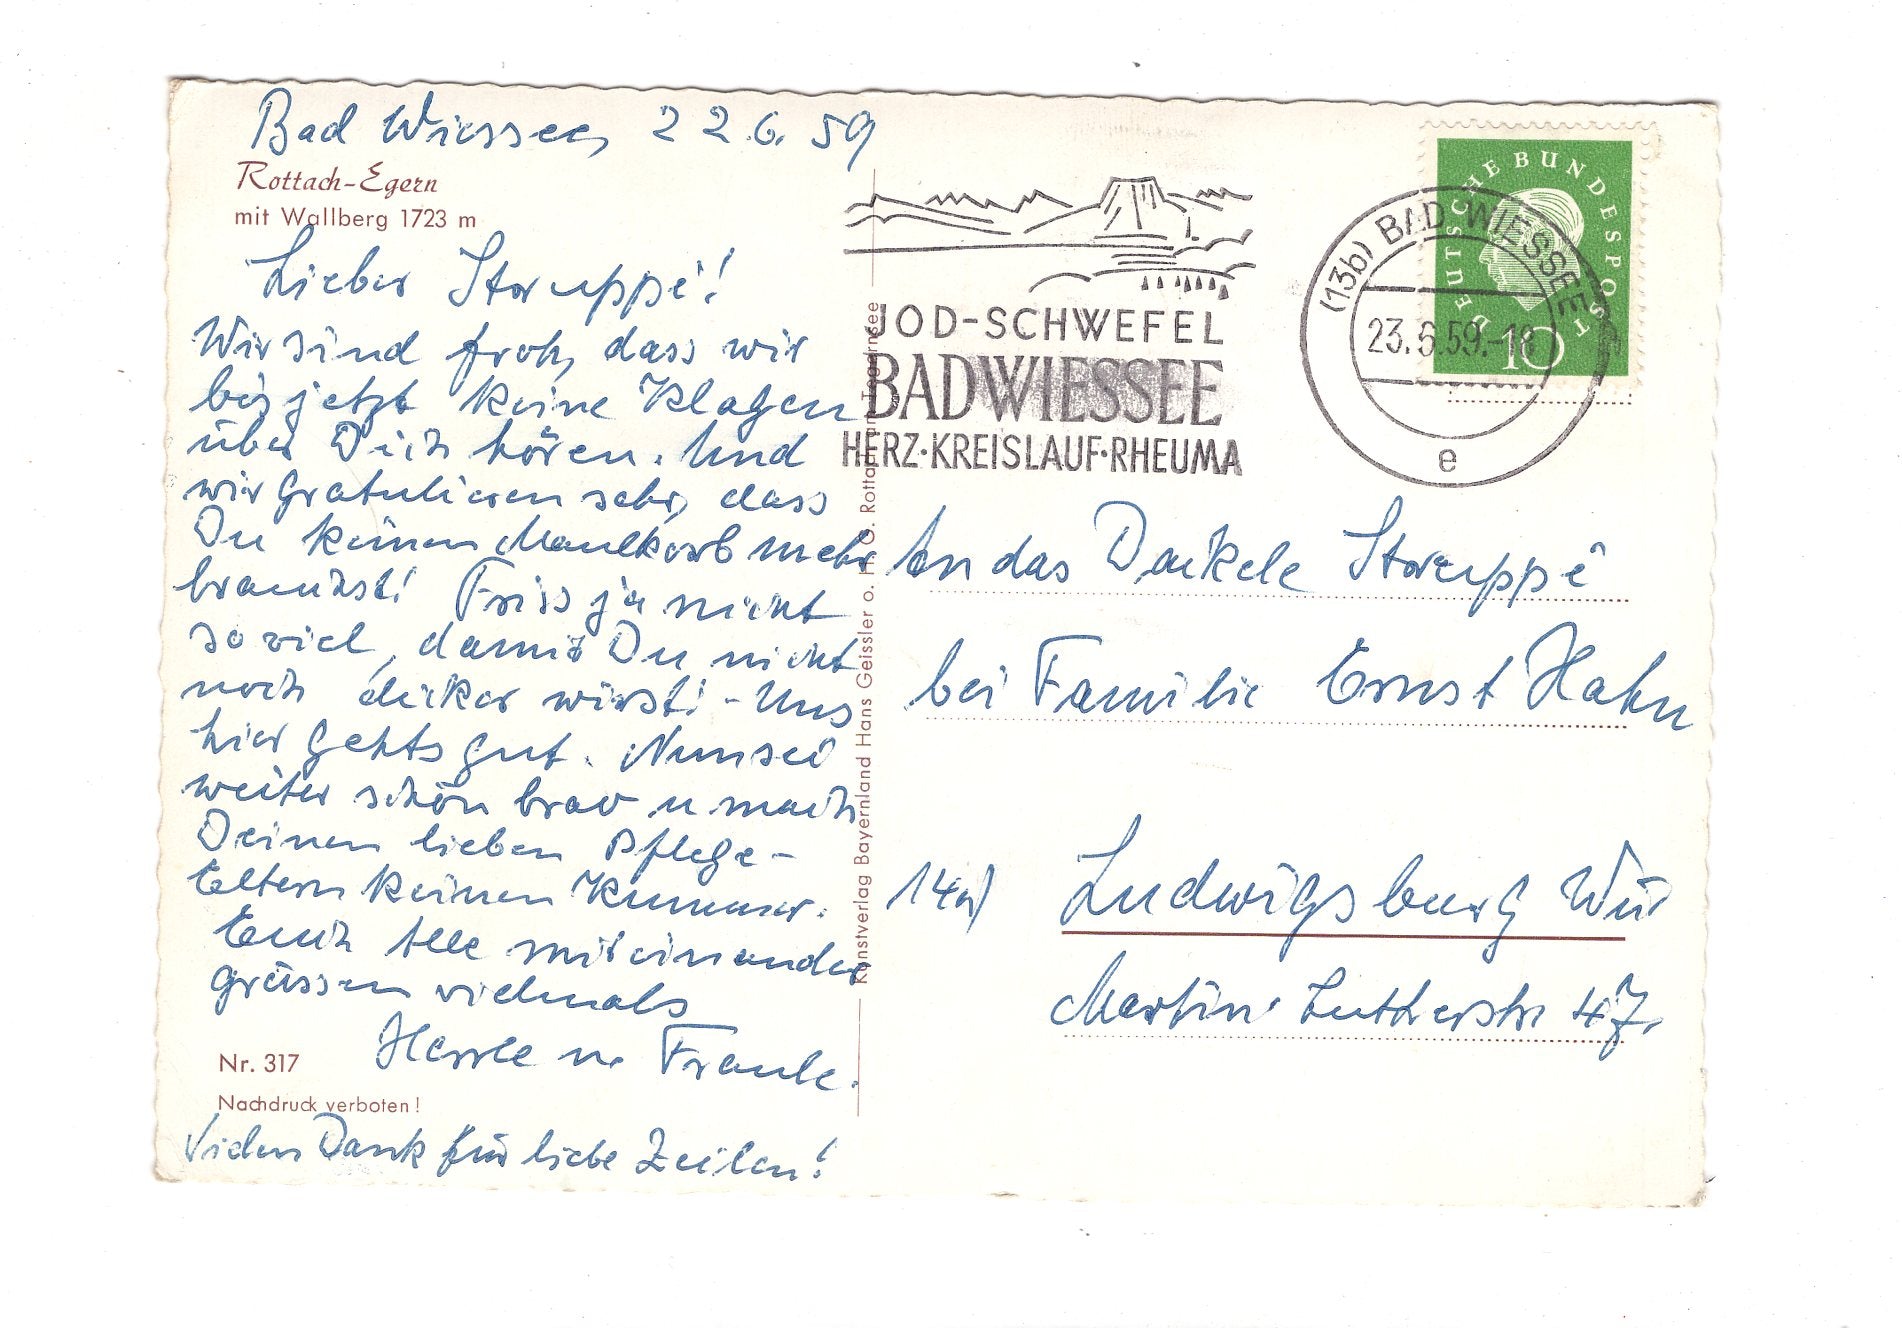 Bad Wiessee, 22.6.59
Rottach-Egern
mit Wallberg 1723 m
Lieber Struppi!
Wir sind froh, dass wir
bis jetzt keine Klagen
über Dich hören. Und
wir gratulieren sehr, dass
Du keinen Maulkorb mehr
brauchst! Friss ja nicht
so viel, damit Du nicht
noch dicker wirst! - Uns
hier gehts gut. Nun sei
weiter schön brav u mach
Deinen lieben Pflege-
Eltern keinen Kummer.
Euch alle miteinander
grüssen vielmals
u.
Nr. 317
Nachdruck verboten!
Vielen Dank für liebe Zeilen!
Kunstverlag Bayernland Hans Geissler o. H. G. Rottach am Tegernsee
JOD-SCHWEFEL
BAD WIESSEE
HERZ·KREISLAUF·RHEUMA
(13b) BAD WIESSEE
23.6.59.-18
e
DEUTSCHE BUNDESPOST
10
An das Dackele Struppi
bei Familie Ernst Hahn
14a) Ludwigsburg Wü
Martin Lutherstr 47.